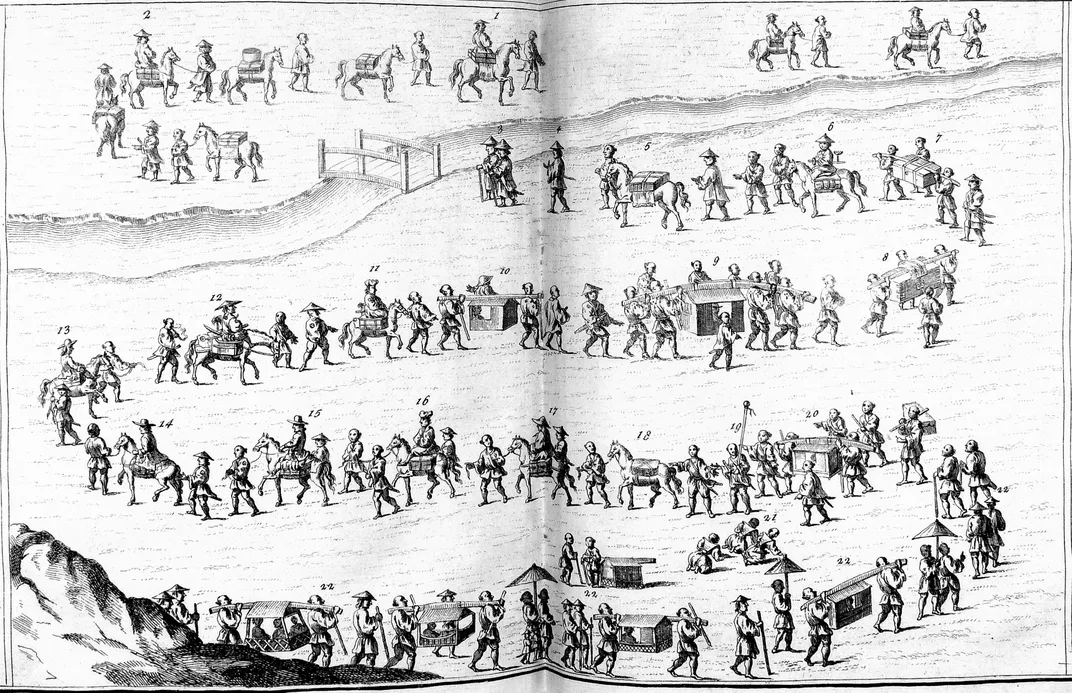 2
1
3
4
5
6
7
8
9
10
11
12
13
14
15
16
17
18
19
20
21
22
22
22
22